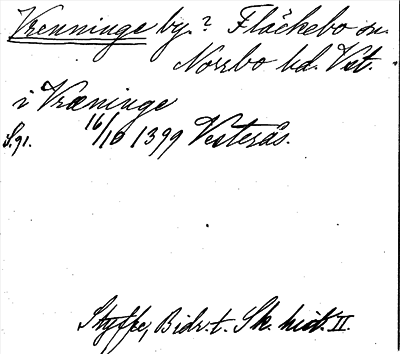 Vrenninge by.? Fläckebo sn.
Norrbo hd. Vst.
i Vræninge
S.91. 16/10 1399 Vesterås.
Styffe, Bidr. t. Sk. hist. II.